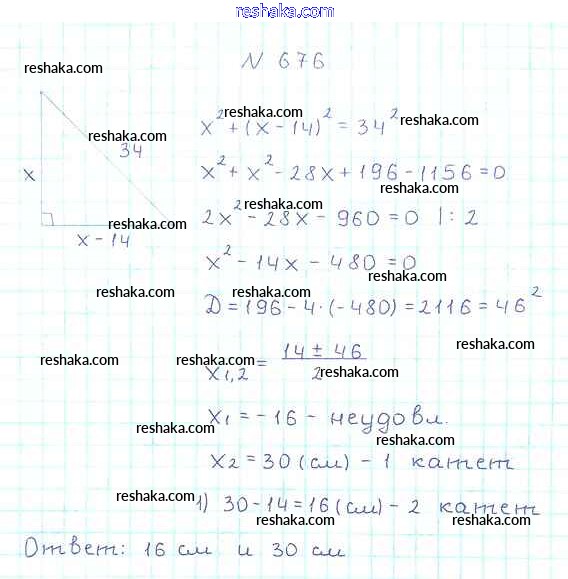 reshaka.com
N 676
reshaka.com
x² + (x - 14)² = 34²
reshaka.com
reshaka.com
reshaka.com
34
x
x² + x² - 28x + 196 - 1156 = 0
reshaka.com
reshaka.com
2x² - 28x - 960 = 0 |: 2
reshaka.com
x - 14
x² - 14x - 480 = 0
reshaka.com
reshaka.com
reshaka.com
D = 196 - 4·(-480) = 2116 = 46²
reshaka.com
reshaka.com
reshaka.com
x1,2 = 14 ± 46 / 2
reshaka.com
x1 = -16 - неудовл.
reshaka.com
reshaka.com
x2 = 30 (см) - 1 катет
reshaka.com
1) 30 - 14 = 16 (см) - 2 катет
reshaka.com
reshaka.com
Ответ: 16 см и 30 см